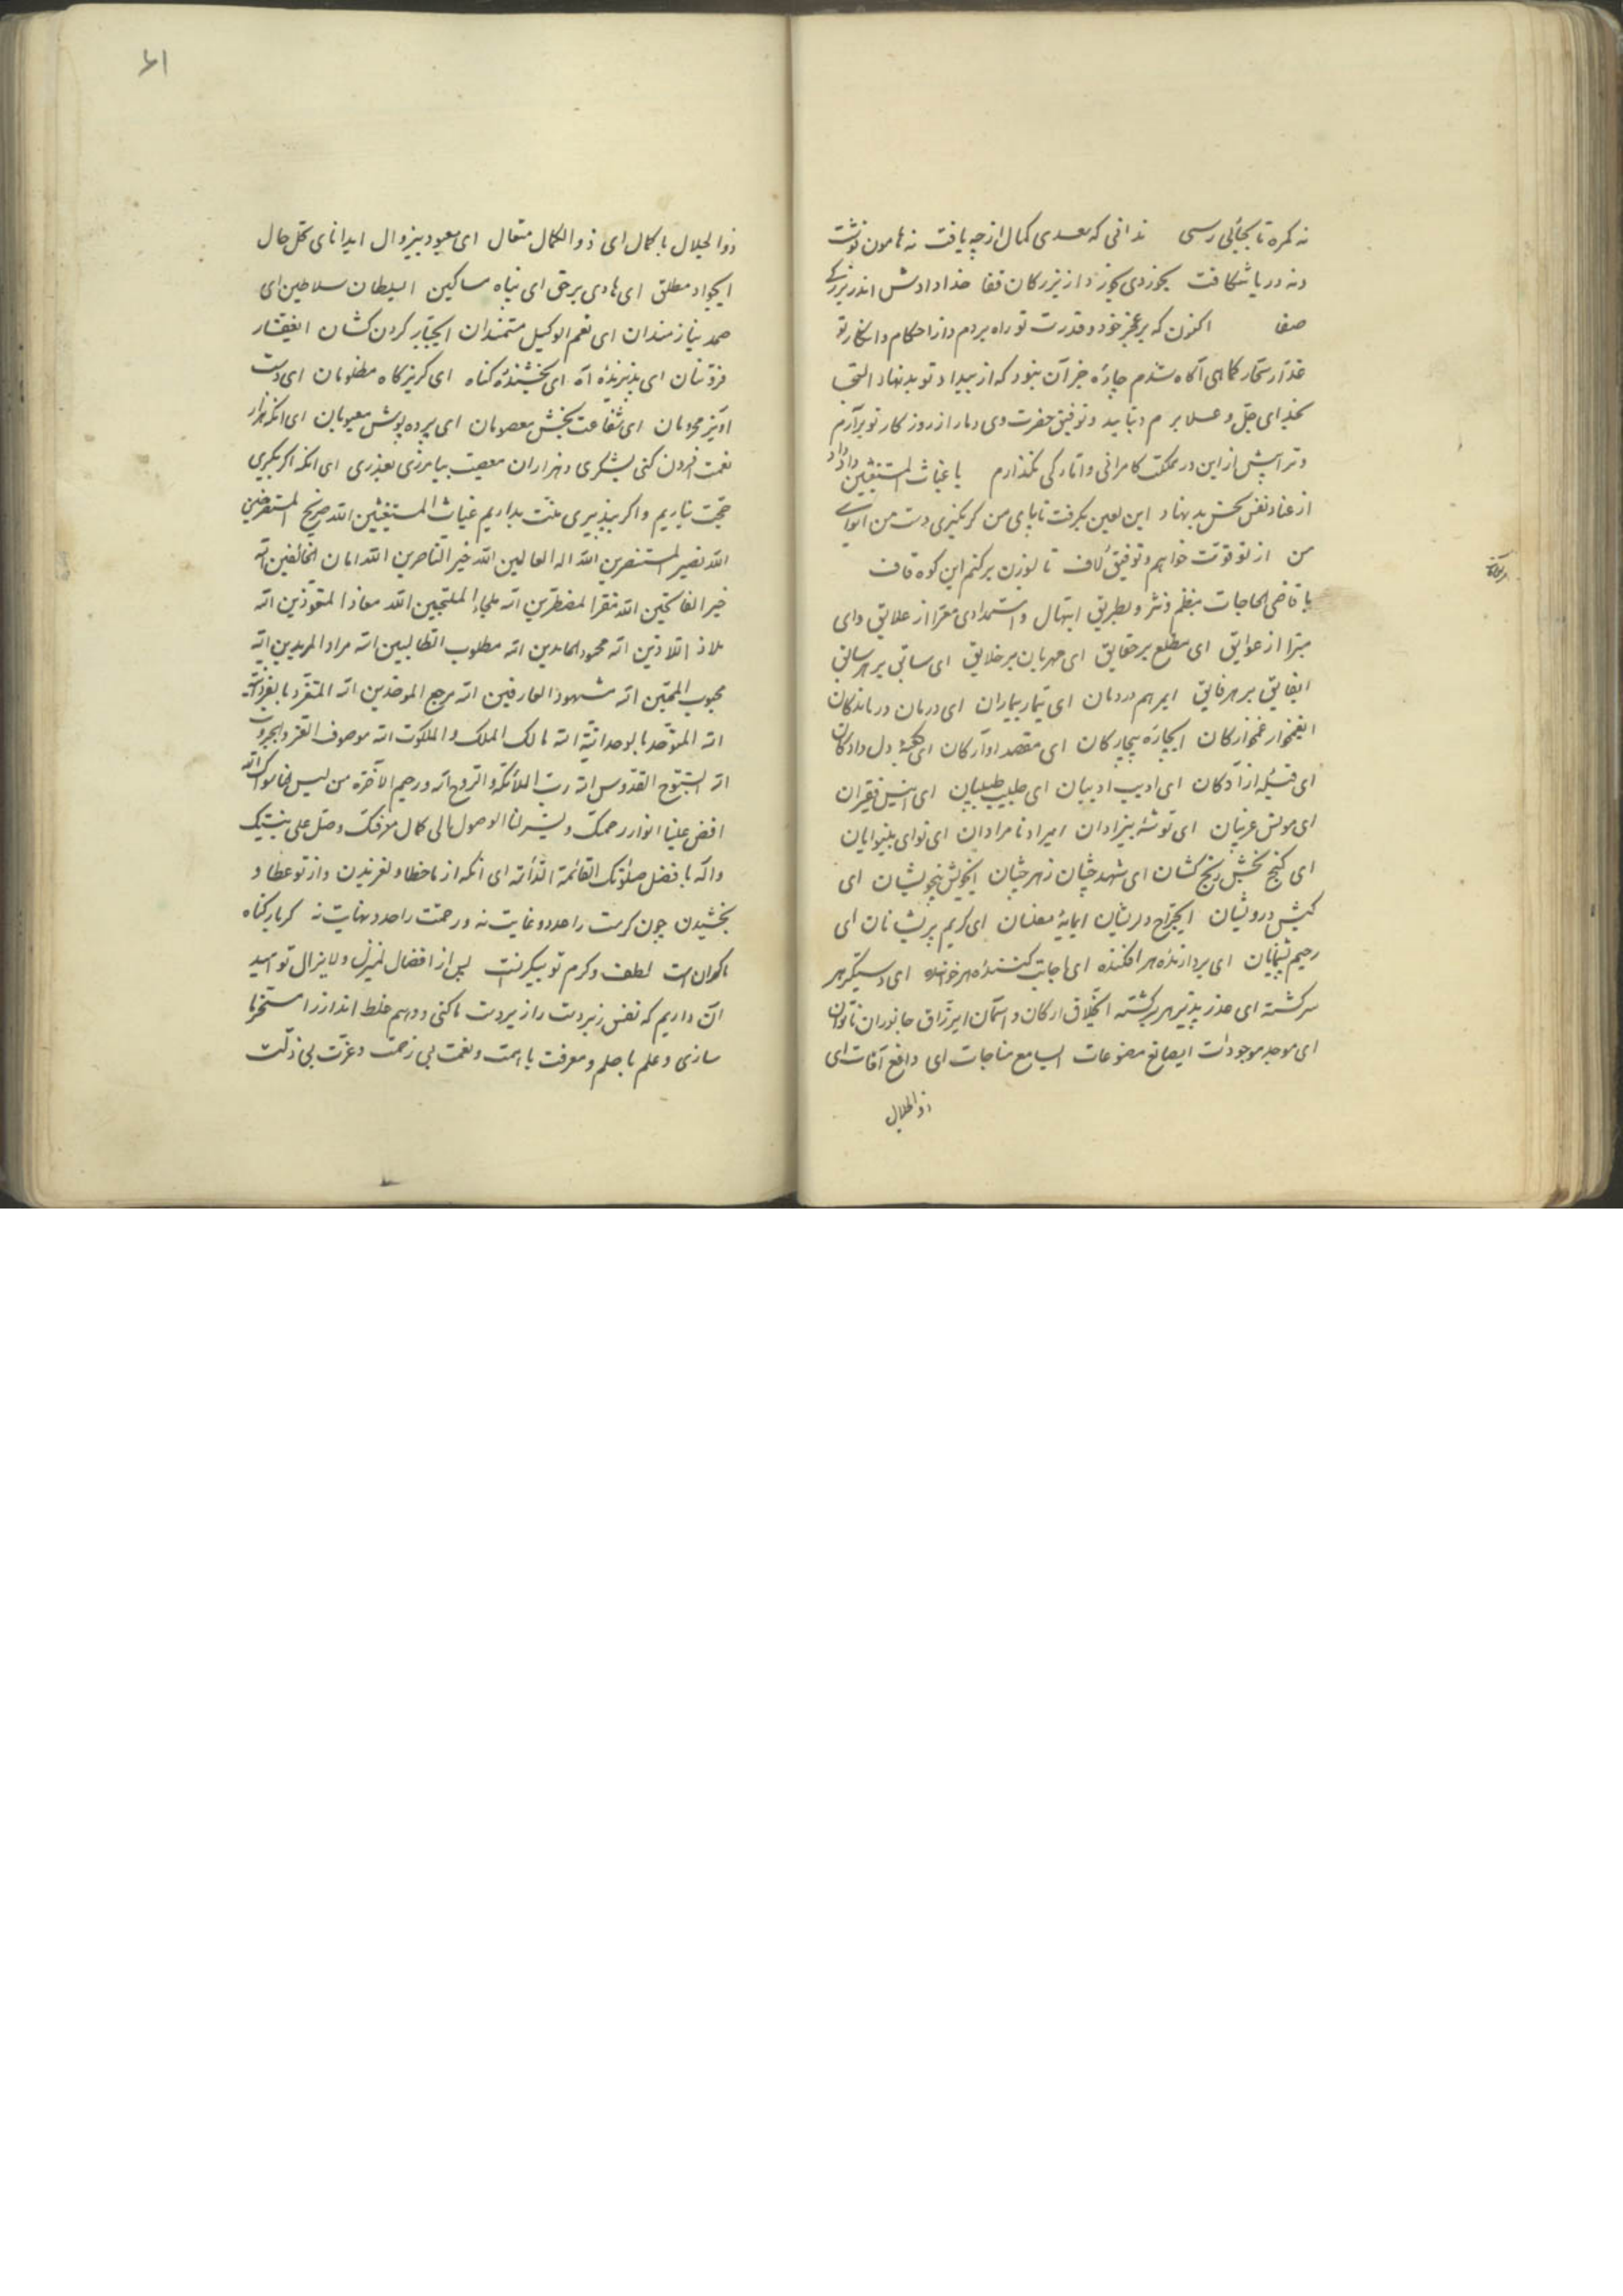 نه کمره تا بجائی رسی ندانی که سعدی کمال از چه یافت نه هامون نوشت
ونه دریا شکافت بخوردی بخورد از بزرگان قفا خدا دادش اندر بزرگی
صفا اکنون که بر عجز خود و قدرت تو راه بردم و از احکام و انکار تو
غدار سحار کماهی آکاه شدم چاره جز آن نبود که از بیداد تو بدنهاد التجا
بخدای جل و علا برم و بتایید و توفیق حضرت وی دمار از روزکار تو برآرم
وترا پیش از این در مملکت کامرانی واتارکی نکذارم یا غیاث المستغیثین داد داد
از عناد نفس نحس بدنهاد این لعین بکرفت تا پای من کر نکیری دست من ای وای
من از تو قوت خواهم و توفیق لاف تا بوزن برکنم این کوه قاف
یا قاضی الحاجات بنظم ونثر وبطریق ابتهال و استمدادی معرا از علایق وای
مبرا از عوایق ای مطلع بر حقایق ای مهربان بر خلایق ای سابق بر هر سابق
ایفایق بر هر فایق ایمرهم دردمان ای تیمار بیماران ای درمان درماندکان
ایغمخوار غمخوارکان ایچاره بیچارکان ای مقصد اوآرکان ای کعبهٔ دل دادکان
ای قبیله ازآدکان ای ادیب ادیبان ای طبیب طبیبان ای انیس فقیران
ای مونس غریبان ای توشهٔ بیزادان ایمراد نامرادان ای نوای بینوایان
ای کنج بخش رنج کشان ای شهد چشان زهر چشان ایخویش بیخویشان ای
کیش درویشان ایجراح دلریشان ایمایهٔ مفلسان ای کریم پریشانان ای
رحیم پشیمانان ای بردارندهٔ هر افکنده ای اجابت کنندهٔ هر خواننده ای دستکیر هر
سرکشته ای عذر پذیر هر برکشته ایخلاق ارکان و اسمآن ایرزاق جانوران ناتوان
ای موجد موجودات ایصانع مصنوعات ایسامع مناجات ای دافع آفات ای
ذوالجلال
۶۱
ذوالجلال با کمال ای ذوالکمال متعال ای معبود بیزوال ایدانای کل حال
ایجواد مطلق ای هادی برحق ای پناه مساکین ایسلطان سلاطین ای
صمد نیازمندان ای نعم الوکیل مستمندان ایجبار کردن کشان ایغفار
فروتنان ای پذیرندهٔ آه ای بخشندهٔ کناه ای کریزکاه مظلومان ای دست
آویز محرومان ای شفاعت بخش معصومان ای پرده پوش معیوبان ای آنکه هزار
نعمت افزون کنی بشکری و هزاران معصیت بیامرزی بعذری ای انکه اکر بکیری
حجت نیاریم و اکر بپذیری منت بداریم غیاث المستغیثین الله صریخ المستصرخین
الله نصیر المستنصرین الله اله العالمین الله خیر الناصرین الله امان الخائفین الله
خیر الفاتحین الله مفر المضطرین الله ملجاء الملتجین الله معاذ المتعوذین الله
ملاذ اللائذین الله محمود الحامدین الله مطلوب الطالبین الله مراد المریدین الله
محبوب المحبین الله مشهود العارفین الله مرجع الموحدین الله المتفرد بالفردانیة
الله المتوحد بالوحدانیة الله مالک الملک والملکوت الله موصوف العز والجبروت
الله السبوح القدوس الله رب الملائکة والروح الله ورحیم الآخرة من لیس لنا سواک الله
افض علینا انوار رحمتک ویسر لنا الوصول الی کمال معرفتک وصل علی نبیک
وآله بافضل صلواتک القائمة الدائمة ای آنکه از ما خطا و لغزیدن و از تو عطا و
بخشیدن چون کرمت را حد و غایت نه ورحمتت را حد و نهایت نه کر بار کناه
ما کران است لطف وکرم تو بیکرانست پس از افضال لم یزل ولایزال تو امید
آن داریم که نفس زبردست را زیردست ما کنی و وهم غلط انداز را مسخر ما
سازی وعلم با حلم و معرفت با همت و نعمت بی زحمت و عزت بی ذلت